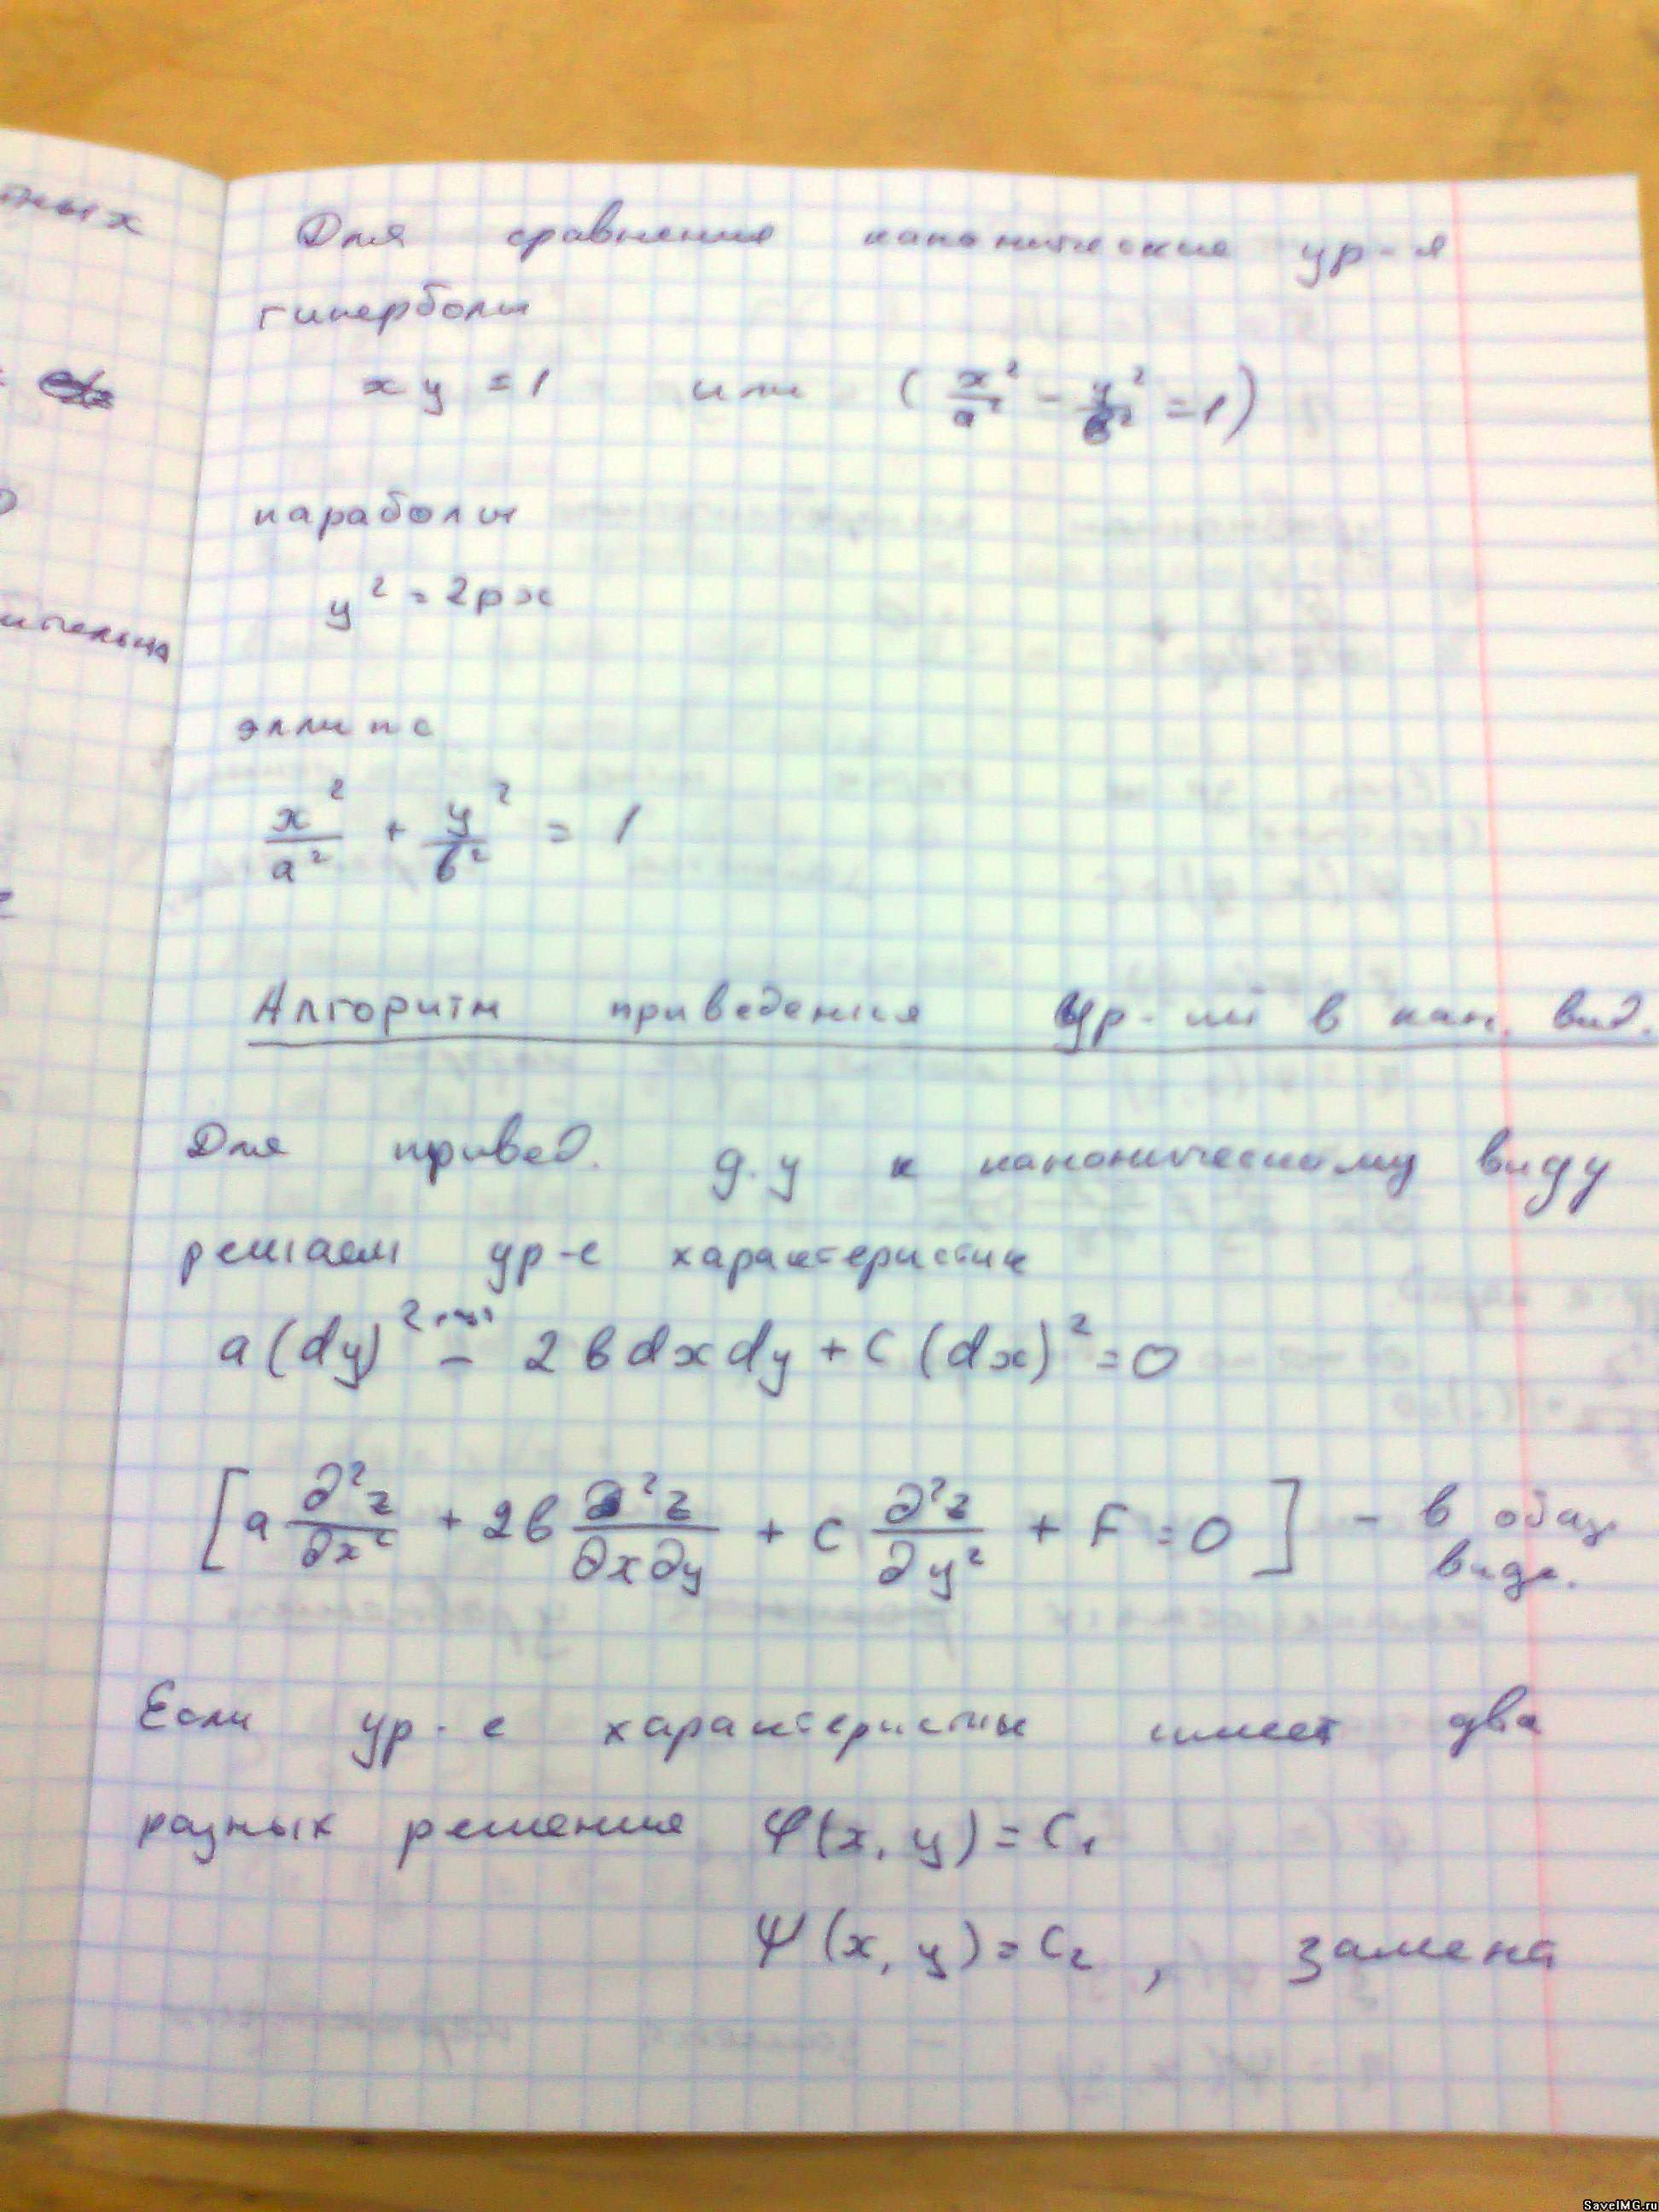 тных
Для сравнения канонические ур-я
гиперболы
xy = 1 или (x²/a² - y²/b² = 1)
параболы
y² = 2px
ительна
эллипс
x²/a² + y²/b² = 1
Алгоритм приведения Ур-ий в кан. вид.
Для привед. д.у к каноническому виду
решаем ур-е характеристик
a(dy)² - 2bdxdy + C(dx)² = 0
[a ∂²z/∂x² + 2b ∂²z/∂x∂y + C ∂²z/∂y² + F = 0] - в общ.
виде.
Если ур-е характеристик имеет два
разных решения φ(x, y) = C₁
ψ(x, y) = C₂, замена
SaveIMG.ru